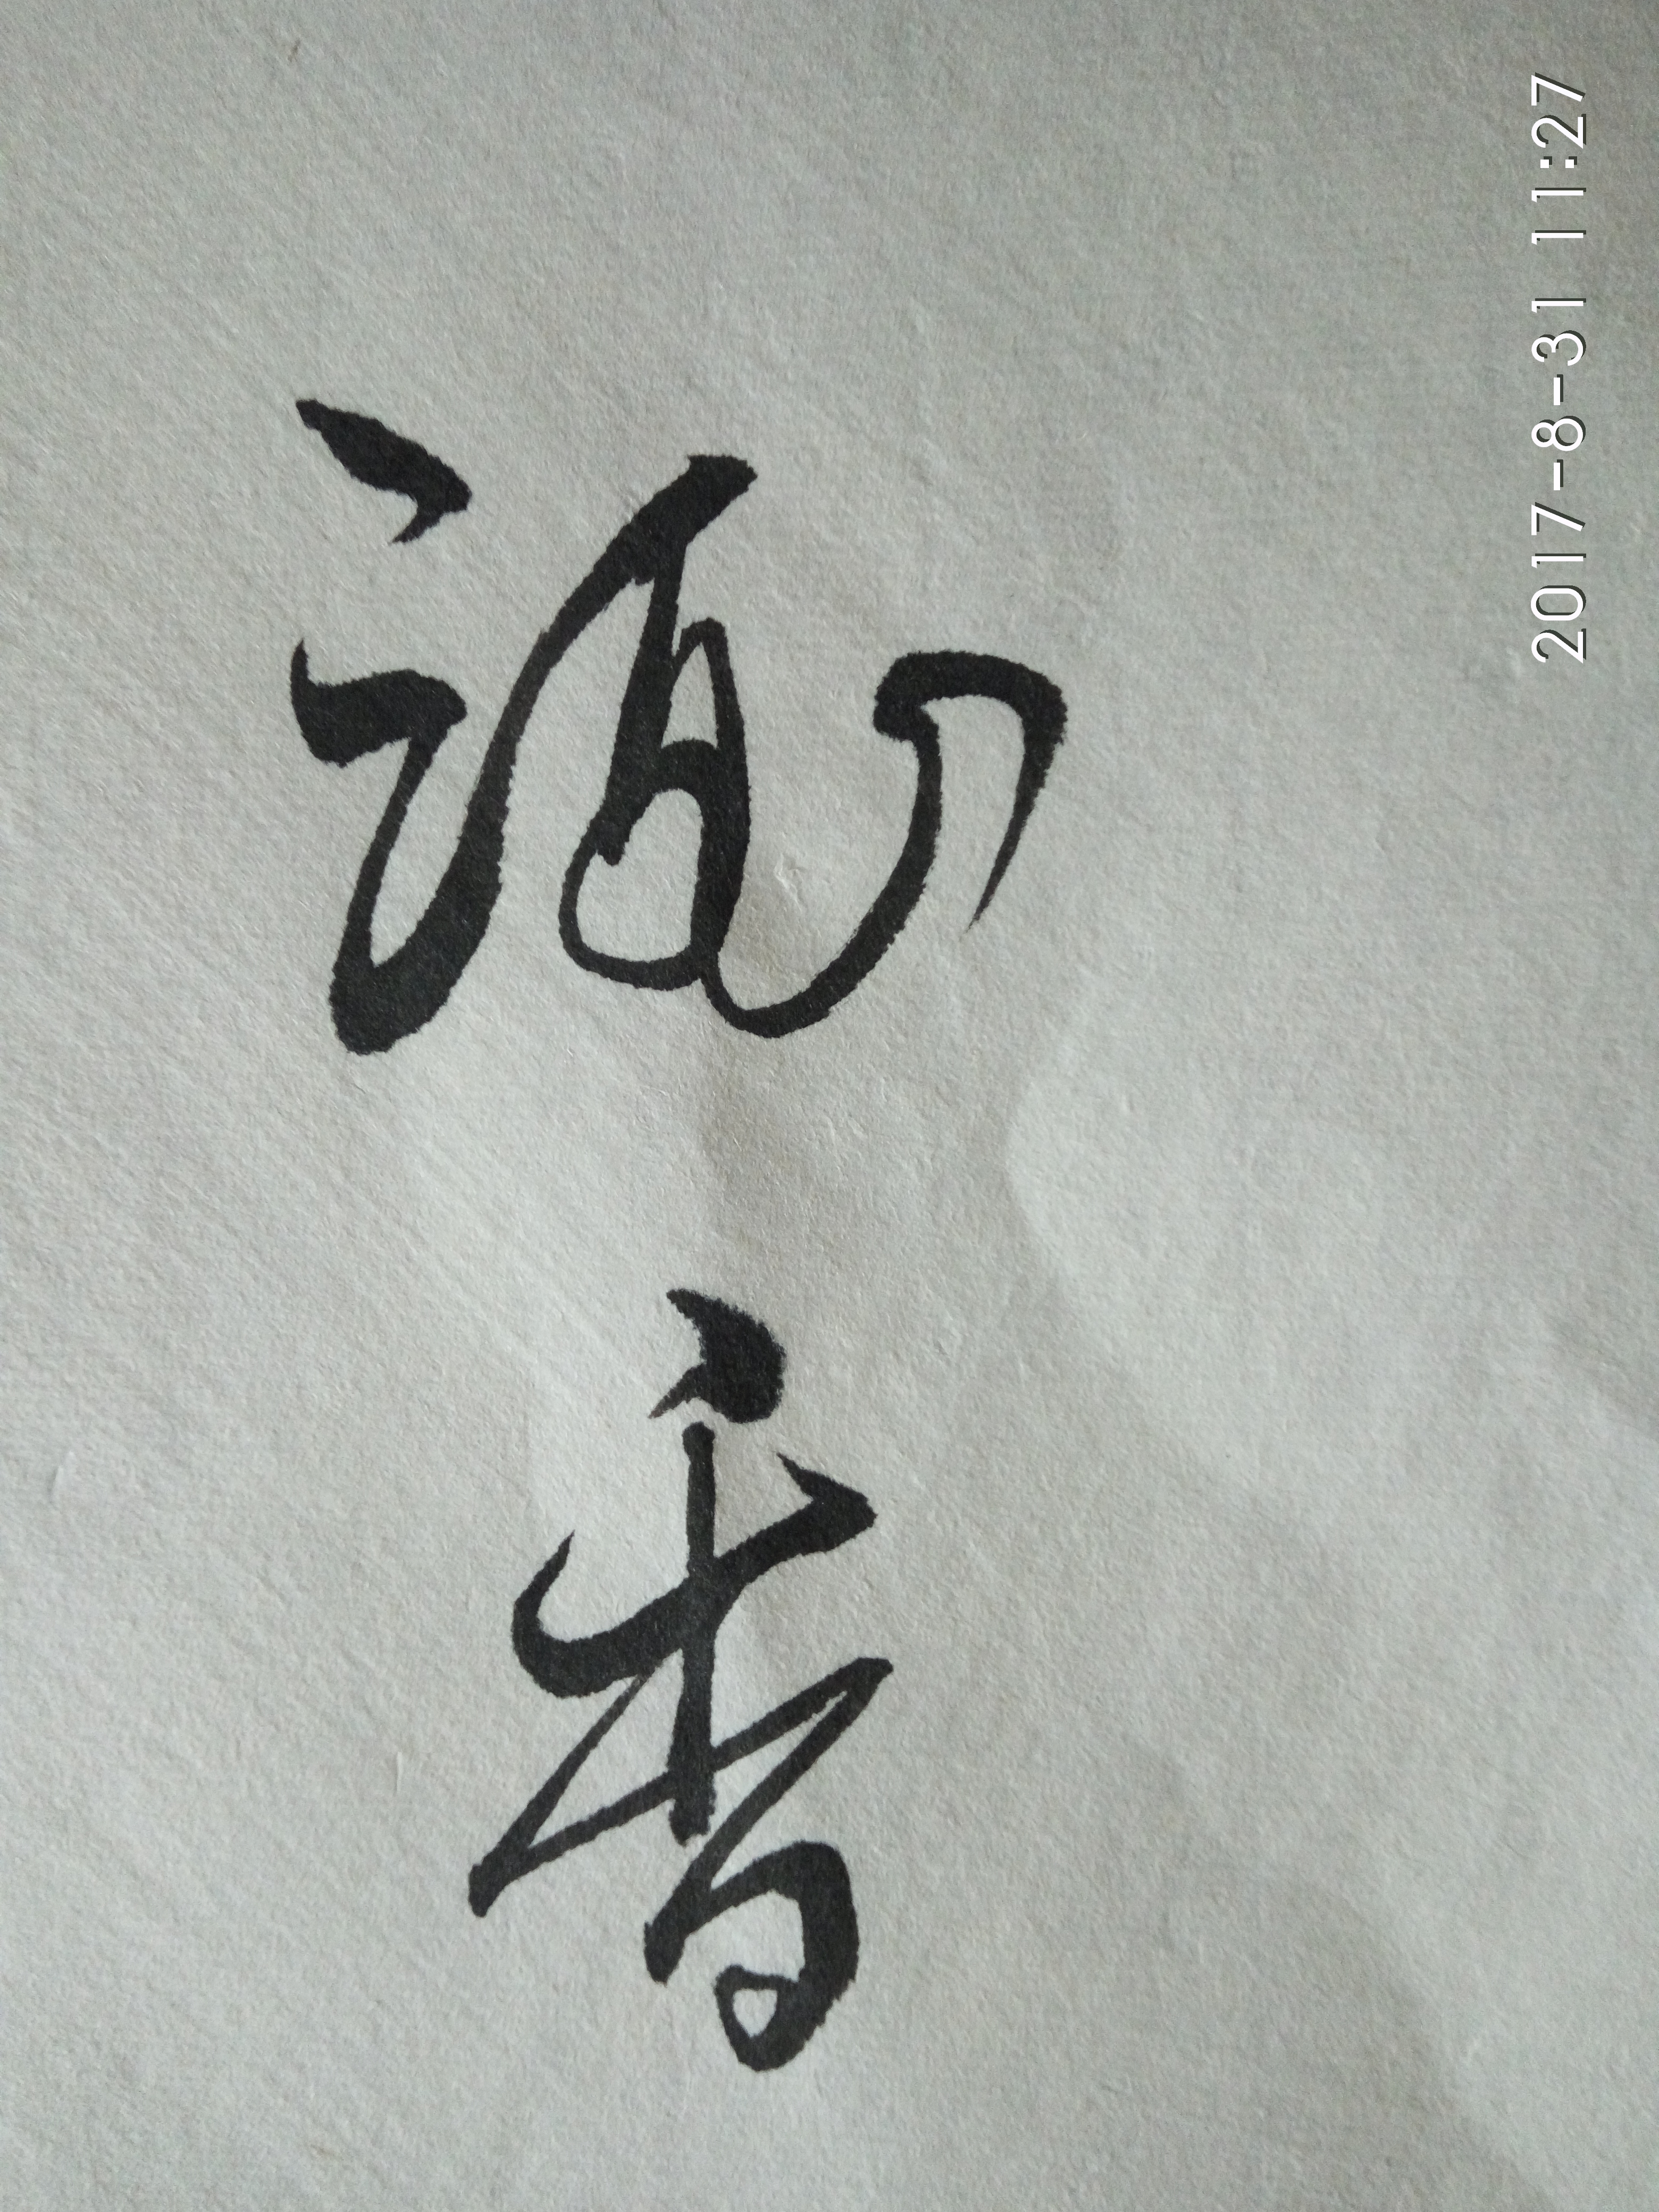 香
2017-8-31 11:27